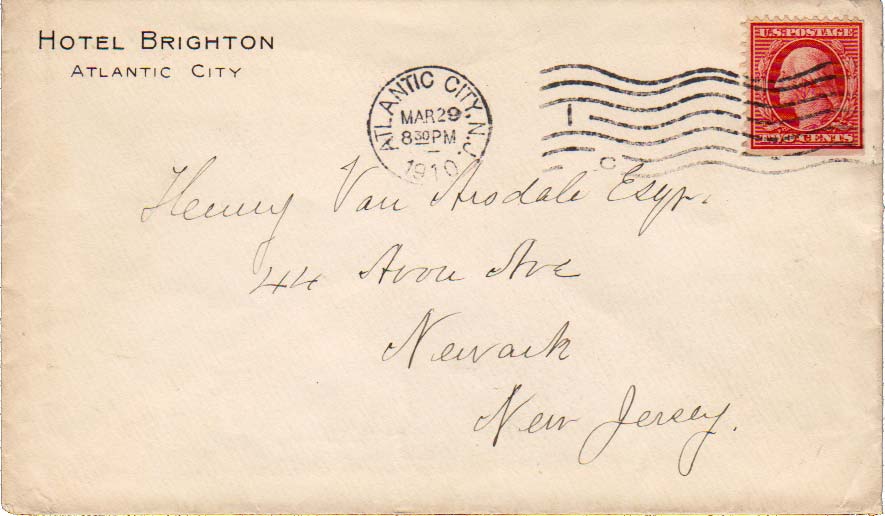 HOTEL BRIGHTON
ATLANTIC CITY
ATLANTIC CITY, N.J.
MAR 29
8 30 PM
1910
U.S. POSTAGE
TWO CENTS
Henry Van Arsdale Esqr.
44 Avon Ave
Newark
New Jersey.